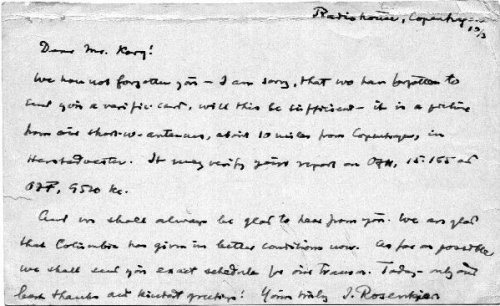 Radiohouse, Copenhagen
Dear Mr. Karg!
We have not forgotten you – I am sorry, that we have forgotten to
send you a verific. card, will this be sufficient – it is a picture
from our short-w-antennas, about 10 miles from Copenhagen, in
Herstedvester. It may verify your report on OZH, 15.165 and
OZF, 9520 kc.
And we shall always be glad to hear from you. We are glad
that Columbia has given us better conditions now. As far as possible
we shall send you exact schedule for our Transm. Today only our
best thanks and kindest greetings! Yours truly I. Rosenkjær